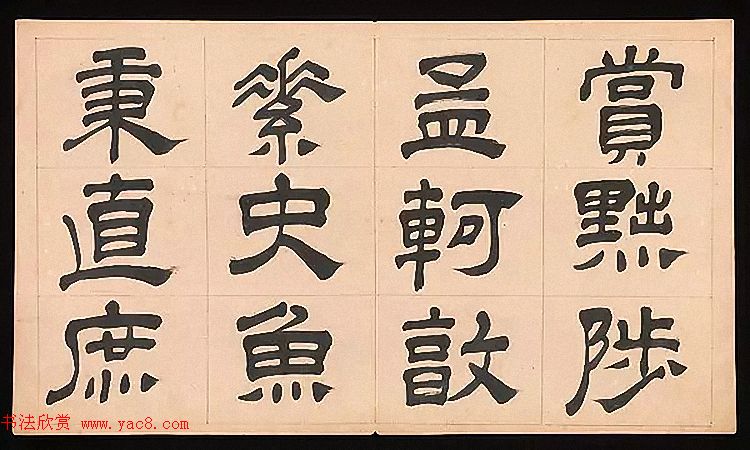 賞黜陟
孟軻敦
素史魚
秉直庶
书法欣赏 www.yac8.com